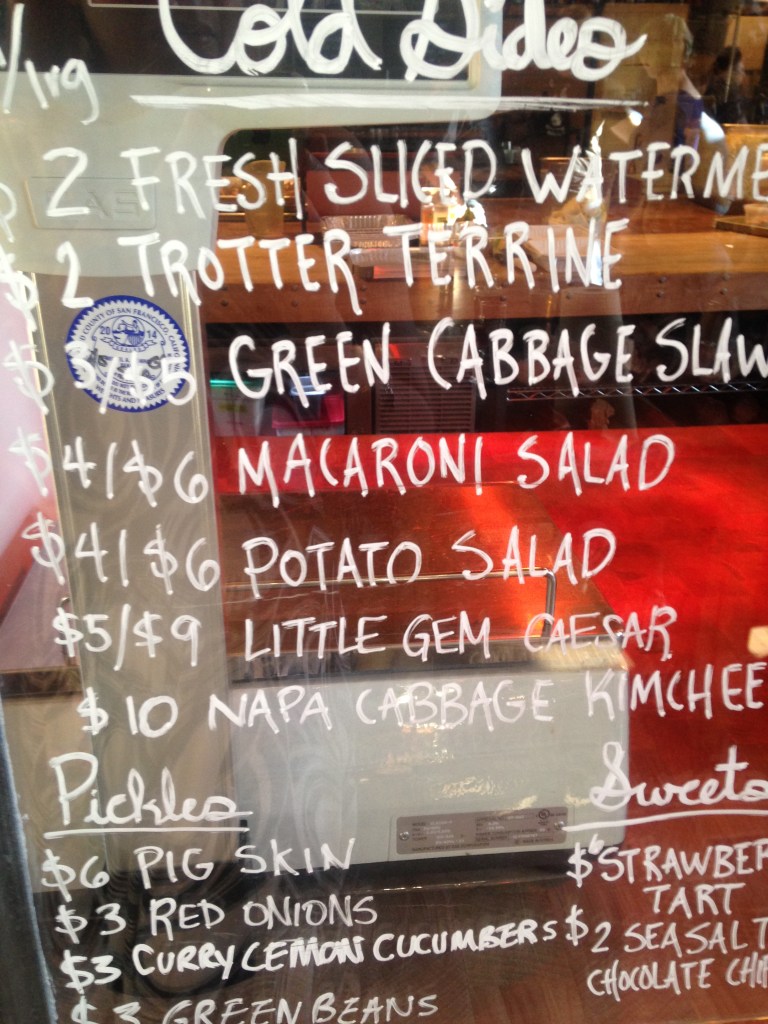 Cold Sides
/lrg
2 FRESH SLICED WATERME
$2 TROTTER TERRINE
$3/$5 GREEN CABBAGE SLAW
$4/$6 MACARONI SALAD
$4/$6 POTATO SALAD
$5/$9 LITTLE GEM CAESAR
$10 NAPA CABBAGE KIMCHEE
Pickles
$6 PIG SKIN
$3 RED ONIONS
$3 CURRY LEMON CUCUMBERS
$3 GREEN BEANS
Sweets
$6 STRAWBER
TART
$2 SEA SALT
CHOCOLATE CHIP
COUNTY OF SAN FRANCISCO, CALIF
2014